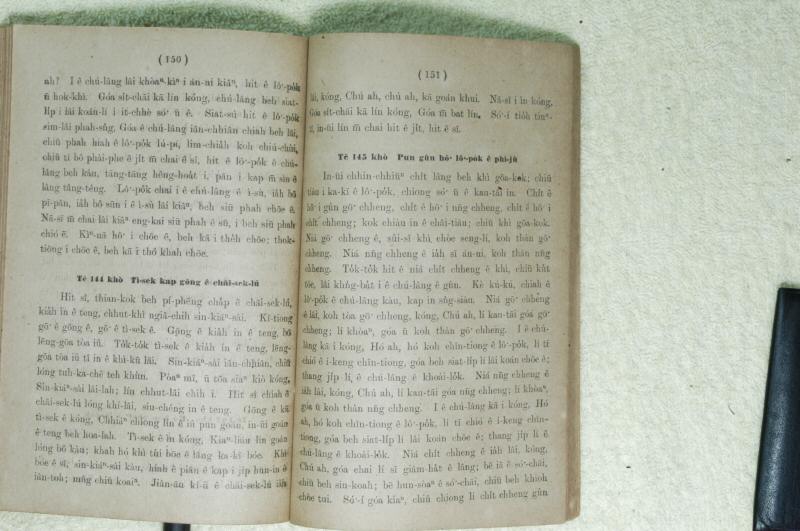 (150)
ah? I ê chú-lâng lâi khòaⁿ-kìⁿ i án-ni kiâⁿ, hit ê lô͘-po̍k
ū hok-khì. Góa si̍t-chāi kā lín kóng, chú-lâng beh siat-
li̍p i lâi koán-lí i it-chhè só͘ ū ê. Siat-sú hit ê lô͘-po̍k
sim-lāi phah-sǹg, Góa ê chú-lâng iân-chhiân chiah beh lâi,
chiū phah hiah ê lô͘-po̍k lú-pī, lim-chia̍h koh chiú-chùi,
chiū tī bô phài-phe ê ji̍t m̄ chai ê sî, hit ê lô͘-po̍k ê chú-
lâng beh kàu, tāng-tāng hêng-hoa̍t i, pān i kap m̄ sìn ê
lâng tâng-téng. Lô͘-po̍k chai i ê chú-lâng ê ì-sù, ia̍h bô
pī-pān, ia̍h bô sūn i ê ì-sù lâi kiâⁿ, beh siū phah chōe ê.
Nā-sī m̄ chai lâi kiâⁿ eng-kai siū phah ê sū, i beh siū phah
chió ê. Kìⁿ-nā hō͘ i chōe ê, beh kā i the̍h chōe; thok-
tiōng i chōe ê, beh kā i thó khah chōe.
Tē 144 khò Tì-sek kap gōng ê chāi-sek-lú
Hit sî, thian-kok beh pí-phēng cha̍p ê chāi-sek-lú,
kia̍h in ê teng, chhut-khì ngiâ-chih sin-kiáⁿ-sài. Kî-tiong
gō͘ ê gōng ê, gō͘ ê tì-sek ê. Gōng ê kia̍h in ê teng, bô
lēng-gōa tòa iû. To̍k-to̍k tì-sek ê kia̍h in ê teng, lēng-
gōa tòa iû tī in ê khì-kū lāi. Sin-kiáⁿ-sài iân-chhiân, chiū
lóng tuh-ka-chē teh khùn. Pòaⁿ mî, ū tōa siaⁿ kiò kóng,
Sin-kiáⁿ-sài lâi-lah; lín chhut-lâi chih i. Hit sî chiah ê
chāi-sek-lú lóng khí-lâi, siu-chéng in ê teng. Gōng ê kā
tì-sek ê kóng, Chhiáⁿ chiong lín ê iû pun goán, in-ūi goán
ê teng beh hoa-lah. Tì-sek ê ìn kóng, Kiaⁿ-liáu lín goán
lóng bô kàu; khah hó khì tùi bōe ê lâng ka-kī bóe. Khì
bóe ê sî, sin-kiáⁿ-sài kàu, hính ê piān ê kap i ji̍p hun-în ê
iân-toh; mn̂g chiū koaiⁿ. Jiân-āu kî-û ê chāi-sek-lú ia̍h
(151)
lâi, kóng, Chú ah, chú ah, kā goán khui. Nā-sī i ìn kóng,
Góa si̍t-chāi kā lín kóng, Góa m̄ bat lín. Só͘-í tio̍h tiuⁿ-
tî, in-ūi lín m̄ chai hit ê ji̍t, hit ê sî.
Tē 145 khò Pun gûn hō͘ lô͘-po̍k ê phì-jū
In-ūi chhin-chhiūⁿ chi̍t lâng beh khì gōa-kok; chiū
tiàu i ka-kī ê lô͘-po̍k, chiong só͘ ū ê kau-tài in. Chi̍t ê
hō͘ i gún gō͘ chheng, chi̍t ê hō͘ i nn̄g chheng, chi̍t ê hō͘ i
chi̍t chheng; kok chiàu in ê châi-tiāu; chiū khì gōa-kok.
Niá gō͘ chheng ê, sûi-sî khì, chòe seng-lí, koh thàn gō͘
chheng. Niá nn̄g chheng ê ia̍h sī án-ni, koh thàn nn̄g
chheng. To̍k-to̍k hit ê niá chi̍t chheng ê khì, chiū ku̍t
tōe, lâi khǹg-ba̍t i ê chú-lâng ê gûn. Kè kú-kú, chiah ê
lô͘-po̍k ê chú-lâng kàu, kap in sǹg-siàu. Niá gō͘ chheng
ê lâi, koh tòa gō͘ chheng, kóng, Chú ah, lí kau-tài góa gō͘
chheng; lí khòaⁿ, góa ū koh thàn gō͘ chheng. I ê chú-
lâng kā i kóng, Hó ah, hó koh chīn-tiong ê lô͘-po̍k, lí tī
chió ê í-keng chīn-tiong, góa beh siat-li̍p lí lâi koán chōe ê;
thang ji̍p lí, ê chú-lâng ê khoài-lo̍k. Niá nn̄g chheng ê
ia̍h lâi, kóng, Chú ah, lí kau-tài góa nn̄g chheng; lí khòaⁿ,
góa ū koh thàn nn̄g chheng. I ê chú-lâng kā i kóng, Hó
ah, hó koh chīn-tiong ê lô͘-po̍k, lí tī chió ê í-keng chīn-
tiong, góa beh siat-li̍p lí lâi koán chōe ê; thang ji̍p lí ê
chú-lâng ê khoài-lo̍k. Niá chi̍t chheng ê ia̍h lâi, kóng,
Chú ah, góa chai lí sī giâm-ha̍t ê lâng; bē iā ê só͘-chāi,
chiū beh sin-koah; bē hun-sòaⁿ ê só͘-chāi, chiū beh khioh
chōe tui. Só͘-í góa kiaⁿ, chiū chiong lí chi̍t chheng gûn